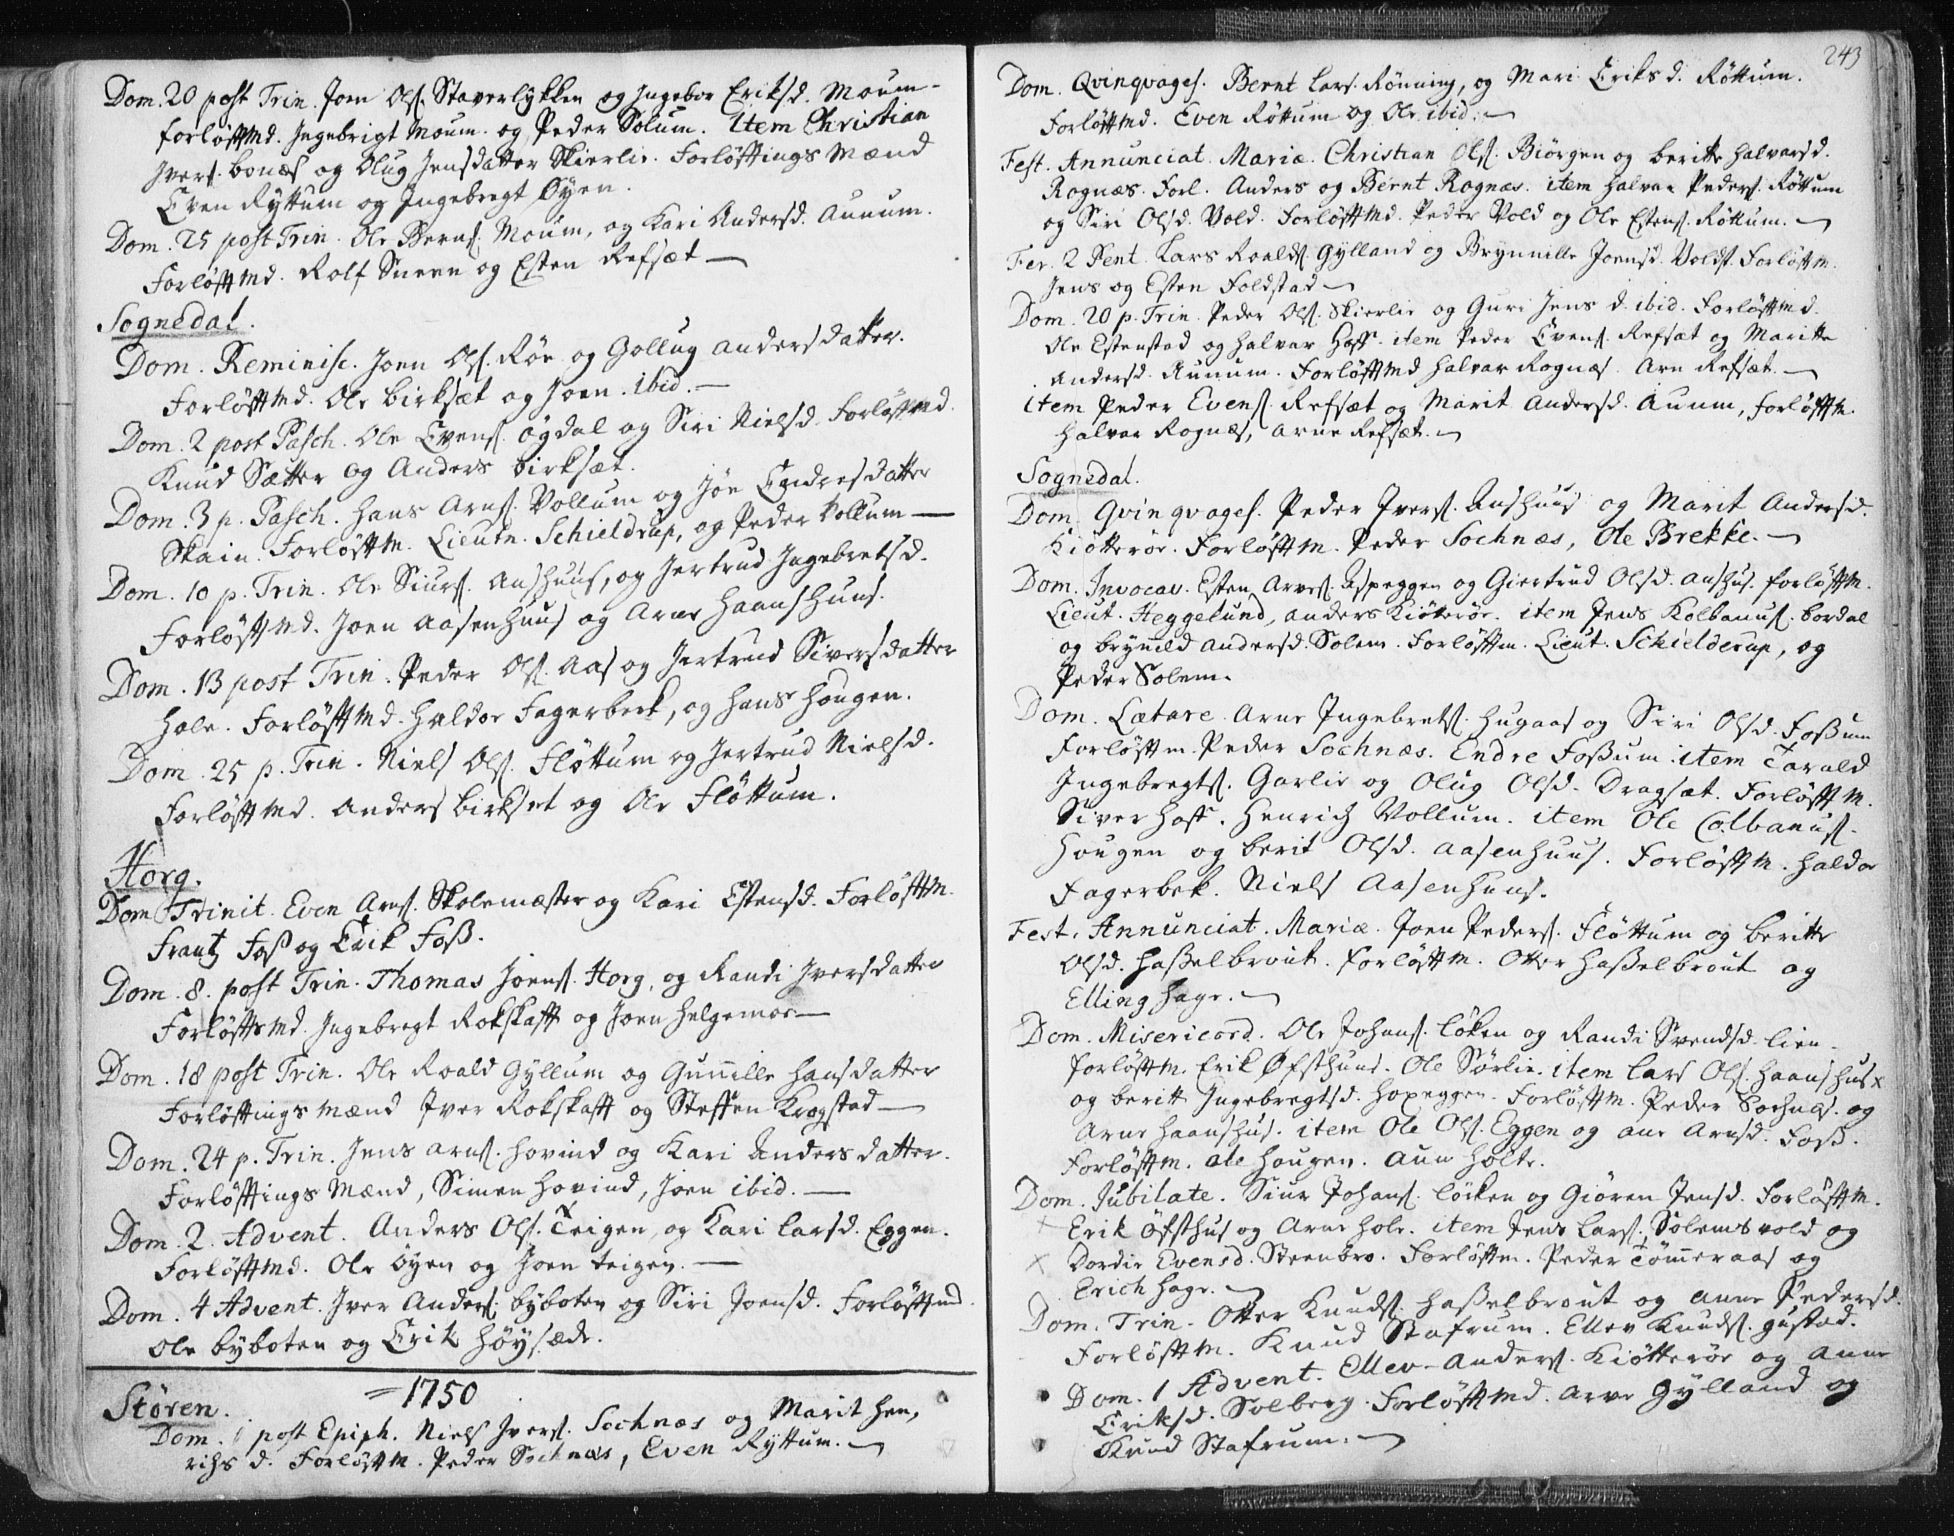 Dom. 20 post Trin. Joen Ols. Staverlykken og Ingebor Eriksd. Moum-
forløfftMd. Ingebrigt Moum. og Peder Solum. Item Christian
Ivers. bonæs og Olug Jensdatter Skierlie. Forløfftings Mænd
Even Ryttum og Ingebregt Øyen.
Dom. 25 post Trin. Ole Berns. Moum, og Kari Andersd. Aunum.
ForløfftMd. Rolf Sneen og Esten Refsæt —
Sognedal.
Dom. Reminisc. Joen Ols. Röe og Gollug Andersdatter.
ForløfftMd. Ole Birksæt og Joen ibid. —
Dom. 2 post Pasch. Ole Evens. Ögdal og Siri Nielsd. ForløfftMd.
Knud Sætter og Anders birksæt.
Dom. 3 p. Pasch. Hans Arns. Vollum og Jön Endresdatter
Skain. Forløfftm. Lieutn. Schieldrup, og Peder Vollum —
Dom. 10 p. Trin. Ole Siurs. Aushuus, og Jertrud Ingebretsd.
ForløfftMd. Joen Aasenhuus og Arne Haanshuus.
Dom. 13 post Trin. Peder Ols. Aas og Jertrud Siversdatter
Hole. ForløfftMd. Haldor Fagerbek, og Hans Hougen.
Dom. 25 p. Trin. Niels Ols. Fløttum og Jertrud Nielsd.
ForløfftMd. Anders Birkset og Ole Fløttum.
Horg.
Dom Trinit. Even Arns. Skolemæster og Kari Estensd. Forløfftm.
Frantz Foss og Erik Foß.
Dom. 8. post Trin. Thomas Joens. Horg, og Randi Iversdatter
ForløfftsMd. Ingebregt Rokskafft og Joen Helgemoe —
Dom. 18 post Trin. Ole Roald Gyllum og Gunnille Hansdatter
Forløfftings Mænd Iver Rokskafft og Steffen Krogstad —
Dom. 24 p. Trin. Jens Arns. Hovind og Kari Andersdatter.
Forløfftings Mænd, Simen Hovind, Joen ibid. —
Dom. 2. Advent. Anders Ols. Teigen, og Kari Larsd. Eggen.
ForløfftMd. Ole Öyen og Joen Teigen. —
Dom. 4 Advent. Iver Anders. byboten og Siri Joensd. Forløfftmd.
Ole byboten og Erik Höysæde.
= 1750
Støren.
Dom. 1 post Epiph. Niels Ivers. Sochnæs og Marit Hen,
richs d. Forløfftm. Peder Sochnæs, Even Ryttum. —
243
Dom. Qvinqvages. Bernt Lars. Rönning, og Mari Eriksd. Röttum.
ForløfftMd. Even Röttum og Ole ibid. —
Fest. Annunciat. Mariæ. Christian Ols. Biörgen og beritte Halvarsd.
Rognæs. Forl. Anders og Bernt Rognæs. item Halvar Peders. Röttum
og Siri Olsd. Vold. ForløfftMd. Peder Vold og Ole Estens. Röttum. —
Fer. 2 Pent. Lars Roalds. Gylland og Brynnille Joensd. Volds. Forløfftm.
Jens og Esten Foldstad —
Dom. 20 p. Trin. Peder Ols. Skierlie og Guri Jens d. ibid. ForløfftMd.
Ole Estenstad og Halvar Hoff. item Peder Evens. Refsæt og Maritte
Andersd. Aunum. ForløfftMd Halvar Rognæs. Arn Refsæt. —
item Peder Evens. Refsæt og Marit Andersd. Aunm, Forløfftm.
Halvar Rognæs, Arne Refsæt. —
Sognedal.
Dom. Qvinqvages. Peder Ivers. Aushuus og Marit Andersd.
Kiötteröe. Forløfftm. Peder Sochnæs, Ole Brekke. —
Dom. Invocav. Esten Arns. Aspeggen og Giertrud Olsd. Aushus. forløfftm.
Lieut. Heggelund, Anders Kiötteröe. item Jens Kolbanus. bordal
og brynild Andersd. Solem. Forløfftm. Lieut. Schielderup, og
Peder Solem.
Dom. Lætare. Arne Ingebrets. Hugaas og Siri Olsd. Foßum
Forløfftm. Peder Sochnæs. Endre Foßum. item Tarald
Ingebregts. Garlie og Olug Olsd. Dragsæt. Forløfftm.
Siver Hoff. Henrich Vollum. item Ole Colbanus.
Hougen og berit Olsd. Aasenhuus. Forløfftm. Haldor
Fagerbek. Niels Aasenhuus.
Fest. Annunciat. Mariæ. Joen Peders. Fløttum og beritte
Olsd. Haßelbrout. Forløfftm. Otter Haßelbrout og
Elling Hage. —
Dom. Misericord. Ole Johans. Löken og Randi Svendsd. Lien.
forløfftm. Erik Øfsthuus. Ole Sörlie. item Lars Ols. Haanshus x
og berith Ingebregtsd. Hoxeggen. Forløfftm. Peder Sochnæs. og
Arne Haanshus. item Ole Ols. Eggen og Ane Arnsd. Foss.
Forløfftm. Ole Hougen. Aun Holte.
Dom. Jubilate. Siur Johans. Löcken og Giören Jensd. Forløfftm.
Erik Öfsthus og Arne Hole. item Jens Lars. Solemsvold og
x Dordie Evensd. Steenbro. Forløfftm. Peder Tömeraas og
Erich Hage. —
Dom. Trin. Otter Knuds. Haßelbrout og Anne Pedersd.
Forløfftm. Knud Stafrum. Ellev Knuds. Gustad.
Dom. 1 Advent. Ellev Anders. Kiötteröe og Anne
Eriksd. Solberg. ForløfftMd. Arve Gylland og
Knud Stafrum. —